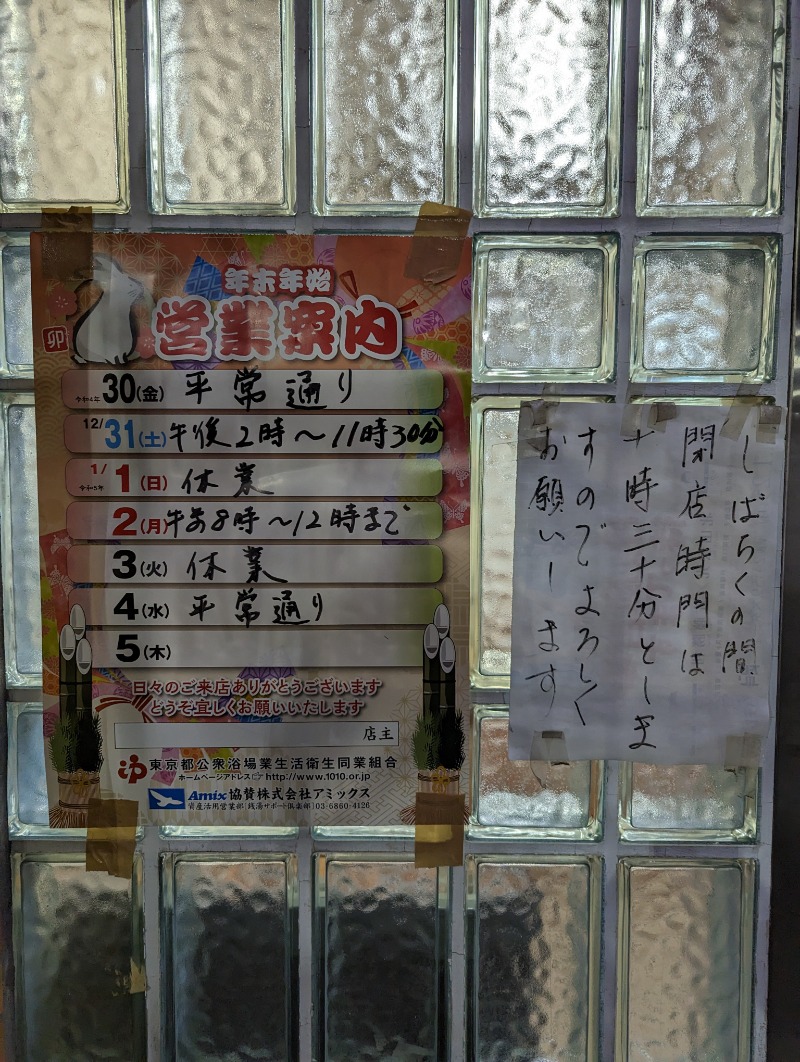 年末年始
営業案内
卯
令和4年 30(金) 平常通り
12/31(土) 午後2時〜11時30分
1/1(日) 令和5年 休業
2(月) 午前8時〜12時まで
3(火) 休業
4(水) 平常通り
5(木)
日々のご来店ありがとうございます
どうぞ宜しくお願いいたします
店主
ゆ 東京都公衆浴場業生活衛生同業組合
ホームページアドレス☞http://www.1010.or.jp
Amix 協賛株式会社アミックス
資産活用営業部(銭湯サポート倶楽部)03-6860-4126
しばらくの間
閉店時間は
十時三十分としま
すのでよろしく
お願いします